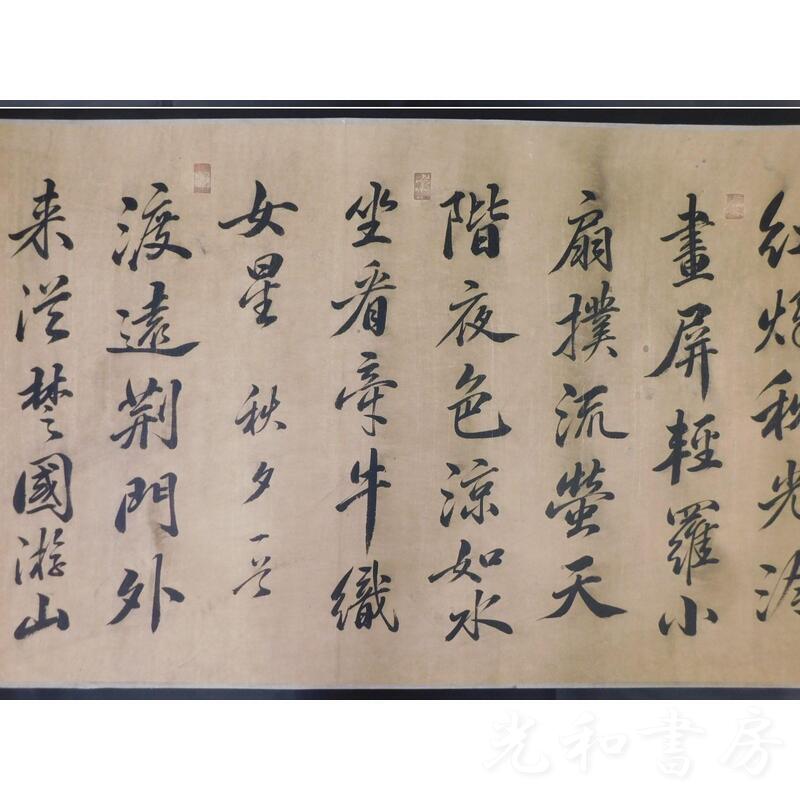 紅燭秋光冷
畫屏輕羅小
扇撲流螢天
階夜色涼如水
坐看牽牛織
女星 秋夕一首
渡遠荊門外
来從楚國遊山
光和書房